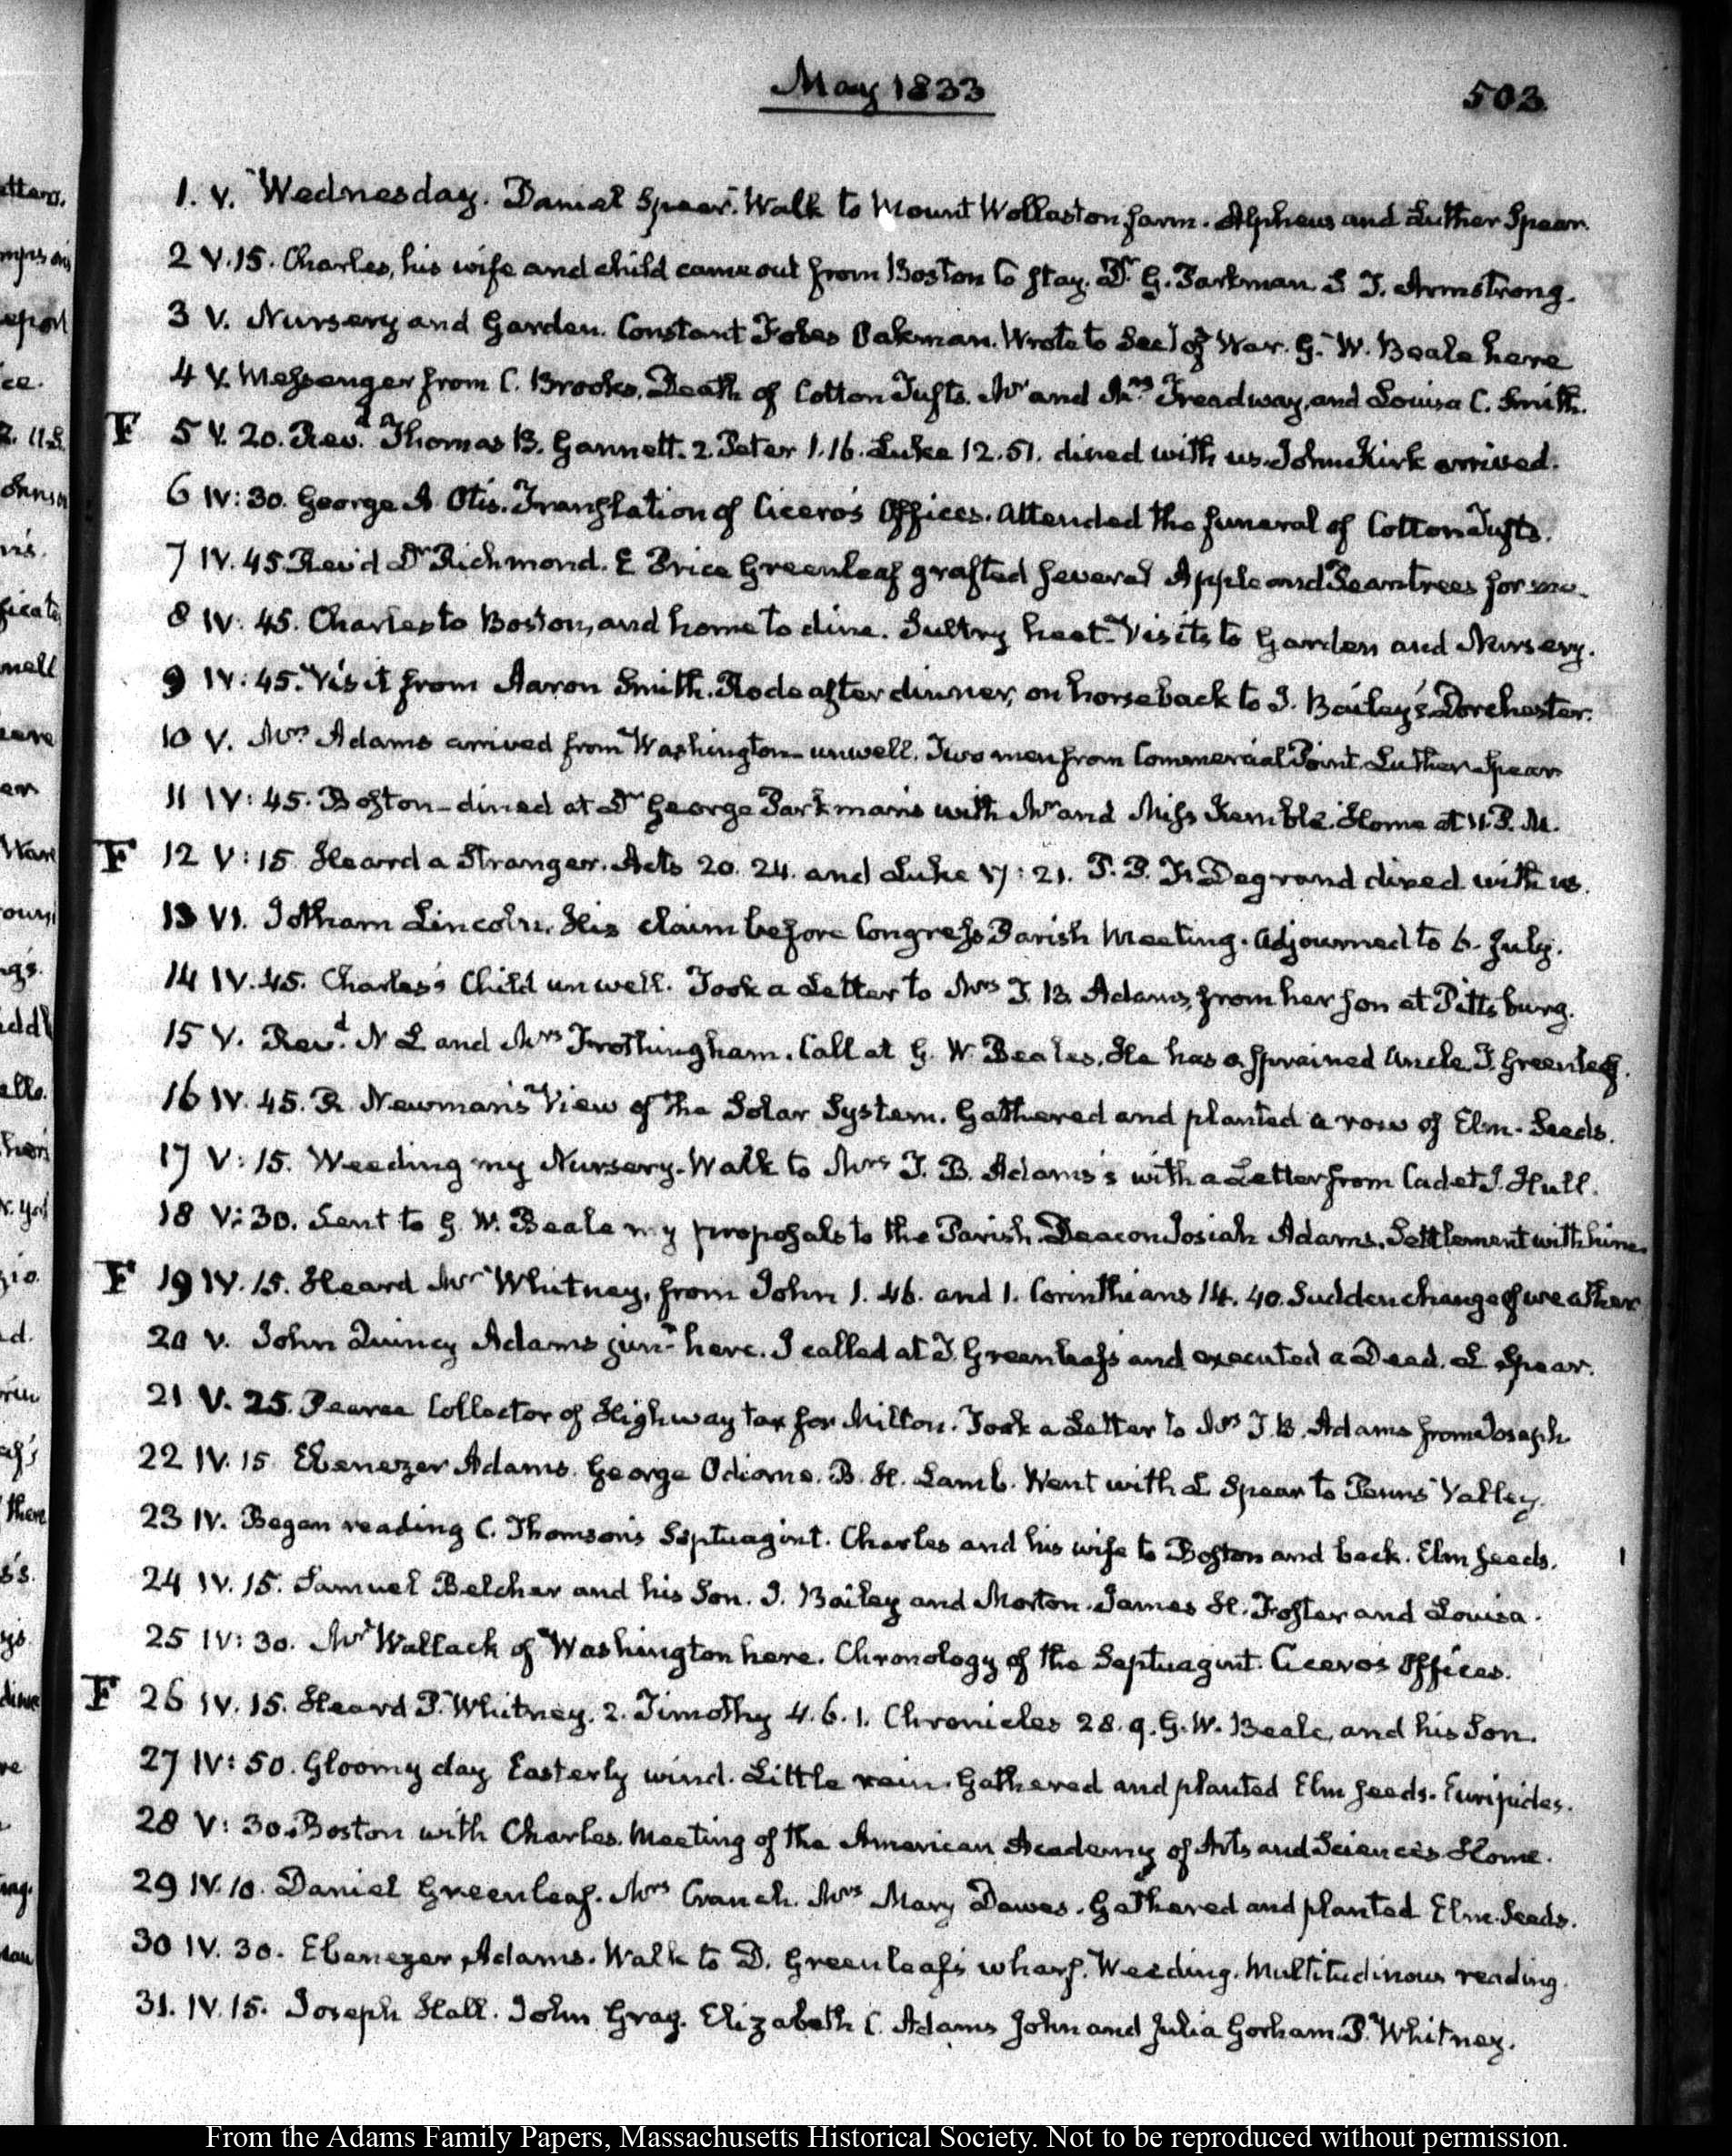 May 1833
503
1. V. Wednesday. Daniel Spear. Walk to Mount Wollaston farm. Alpheus and Luther Spear.
2 V.15. Charles, his wife and child came out from Boston to stay. Dr G. Parkman. S T. Armstrong.
3 V. Nursery and Garden. Constant Fobes Oakman. Wrote to Secy of War. G. W. Beale here
4 V. Messenger from C. Brooks. Death of Cotton Tufts. Mr and Mrs Treadway, and Louisa C. Smith.
F 5 V. 20. Revd. Thomas B. Gannett. 2. Peter 1.16. Luke 12.51. dined with us. John Kirk arrived.
6 IV:30. George A Otis. Translation of Cicero's Offices. Attended the funeral of Cotton Tufts.
7 IV.45. Rev'd Dr Richmond. E Price Greenleaf grafted several Apple and Pear trees for me.
8 IV:45. Charles to Boston, and home to dine. Sultry heat. Visits to Garden and Nursery.
9 IV:45. Visit from Aaron Smith. Rode after dinner, on horseback to J. Bailey's Dorchester.
10 V. Mrs Adams arrived from Washington unwell. Two men from Commercial Point. Luther Spear
11 IV:45. Boston – dined at Dr George Parkman's with Mr and Miss Kemble. Home at 11. P.M.
F 12 V:15 Heard a Stranger. Acts 20. 24. and Luke 17:21. P. P. F. Degrand dined with us.
13 VI. Jotham Lincoln. His claim before Congress. Parish Meeting. Adjourned to 6. July.
14 IV.45. Charles's Child unwell. Took a Letter to Mrs T. B. Adams, from her son at Pittsburg.
15 V. Revd. N L and Mrs Frothingham. Call at G. W. Beales. He has a sprained Ancle. T. Greenleaf.
16 IV.45. R. Newman's View of the Solar System. Gathered and planted a row of Elm-Seeds.
17 V:15. Weeding my Nursery. Walk to Mrs T. B. Adams's with a Letter from Cadet J. Hull.
18 V:30. Sent to G. W. Beale my proposals to the Parish. Deacon Josiah Adams. Settlement with him.
F 19 IV.15. Heard Mr Whitney, from John 1. 46. and 1. Corinthians 14. 40. Sudden change of weather
20 V. John Quincy Adams junr here. I called at T. Greenleaf's and executed a Deed. L Spear.
21 V. 25. Pearce Collector of Highway tax for Milton. Took a Letter to Mrs T. B. Adams from Joseph
22 IV. 15 Ebenezer Adams. George Odiorne. B. H. Lamb. Went with L Spear to Penns Valley.
23 IV. Began reading C. Thomson's Septuagint. Charles and his wife to Boston and back. Elm seeds.
24 IV. 15. Samuel Belcher and his Son. J. Bailey and Morton. James H. Foster and Louisa.
25 IV:30. Mr Wallack of Washington here. Chronology of the Septuagint. Cicero's Offices.
F 26 IV. 15. Heard P. Whitney. 2. Timothy 4. 6. 1. Chronicles 28. 9. G. W. Beale, and his Son.
27 IV:50. Gloomy day Easterly wind. Little rain. Gathered and planted Elm seeds. Euripides.
28 V:30. Boston with Charles. Meeting of the American Academy of Arts and Sciences. Home.
29 IV.10. Daniel Greenleaf. Mrs Cranch. Mrs Mary Dawes. Gathered and planted Elm-Seeds.
30 IV. 30. Ebenezer Adams. Walk to D. Greenleaf's wharf. Weeding. Multitudinous reading.
31. IV.15. Joseph Hall. John Gray. Elizabeth C. Adams John and Julia Gorham. P. Whitney.
From the Adams Family Papers, Massachusetts Historical Society. Not to be reproduced without permission.